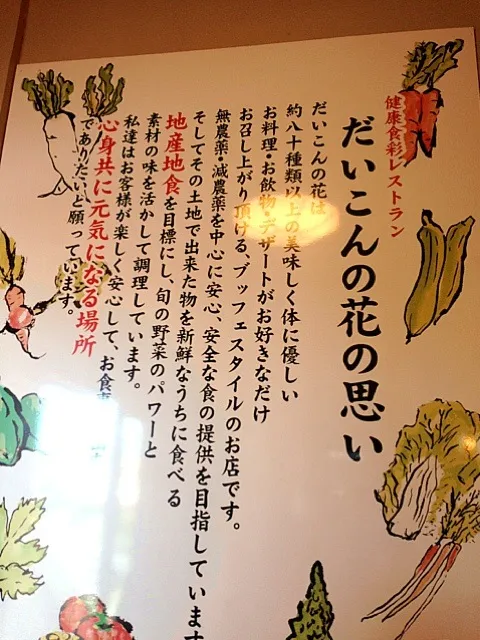 健康食彩レストラン
だいこんの花の思い
だいこんの花は
約八十種類以上の美味しく体に優しい
お料理・お飲物・デザートがお好きなだけ
お召し上がり頂ける、ブッフェスタイルのお店です。
無農薬・減農薬を中心に安心、安全な食の提供を目指しています
そしてその土地で出来た物を新鮮なうちに食べる
地産地食を目標にし、旬の野菜のパワーと
素材の味を活かして調理しています。
私達はお客様が楽しく安心して、お食事
心身共に元気になる場所
でありたいと願っています。